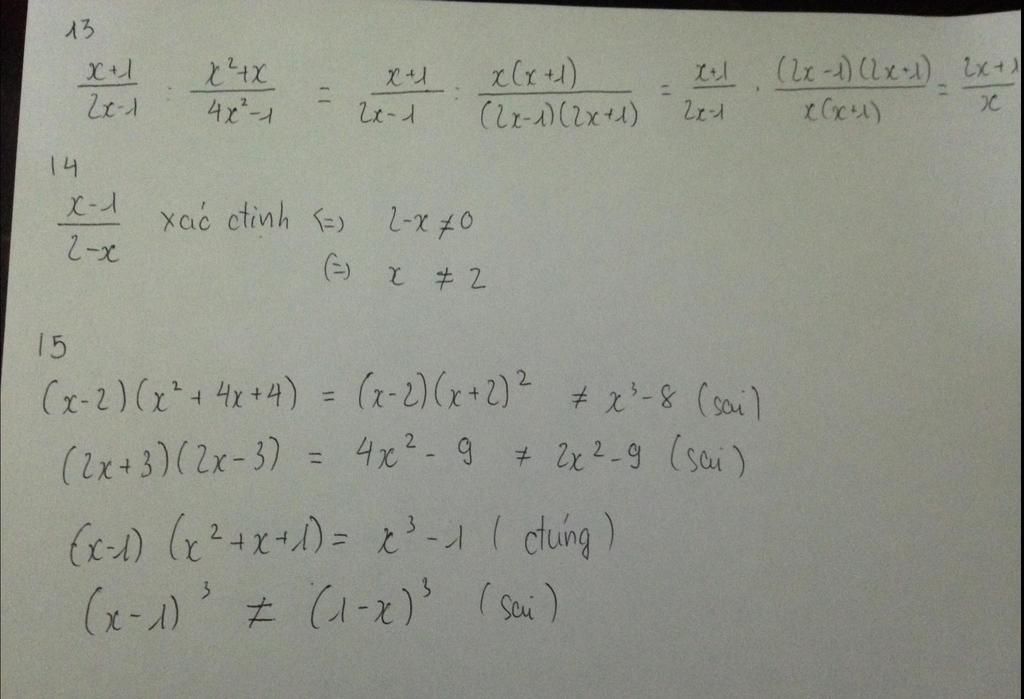 13
\frac{x+1}{2x-1} : \frac{x^2+x}{4x^2-1} = \frac{x+1}{2x-1} : \frac{x(x+1)}{(2x-1)(2x+1)} = \frac{x+1}{2x-1} \cdot \frac{(2x-1)(2x+1)}{x(x+1)} = \frac{2x+1}{x}
14
\frac{x-1}{2-x} xác định (=) 2-x ≠ 0
(=) x ≠ 2
15
(x-2)(x² + 4x+4) = (x-2)(x+2)² ≠ x³-8 (sai)
(2x+3)(2x-3) = 4x² - 9 ≠ 2x²-9 (sai)
(x-1) (x²+x+1) = x³-1 (đúng)
(x-1)³ ≠ (1-x)³ (sai)